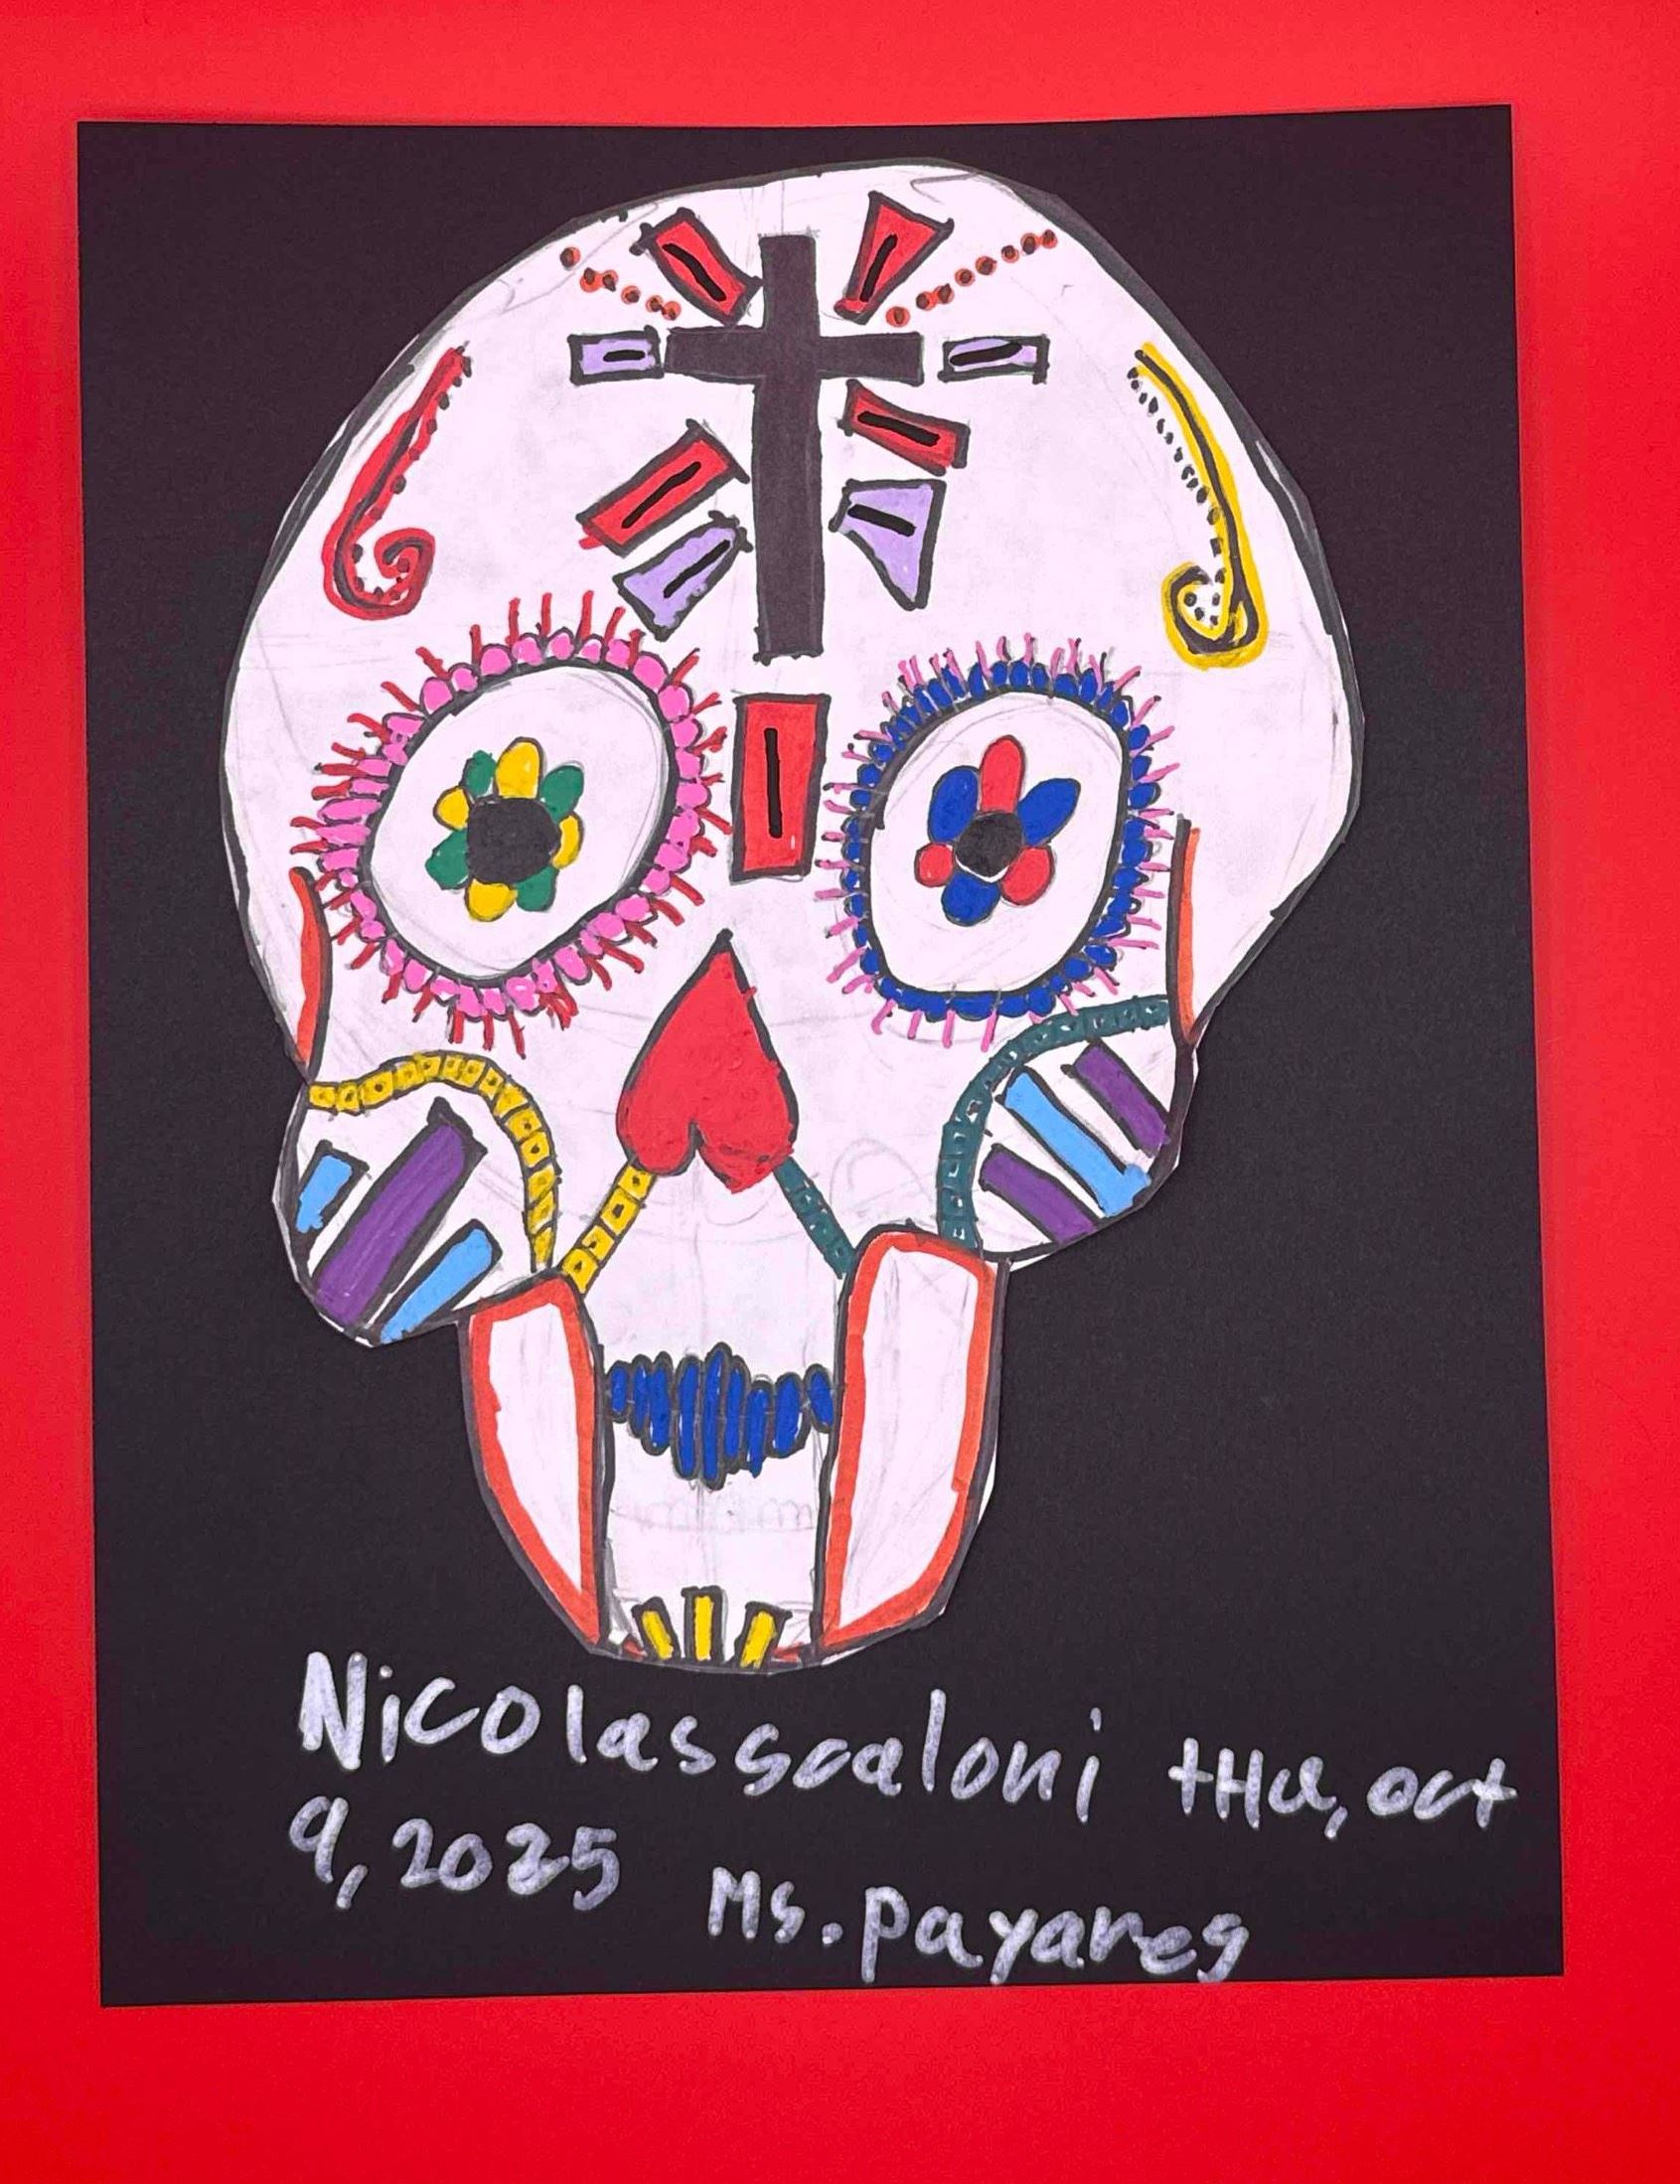 Nicolasscaloni tHu, oct
9, 2025 Ms. payares